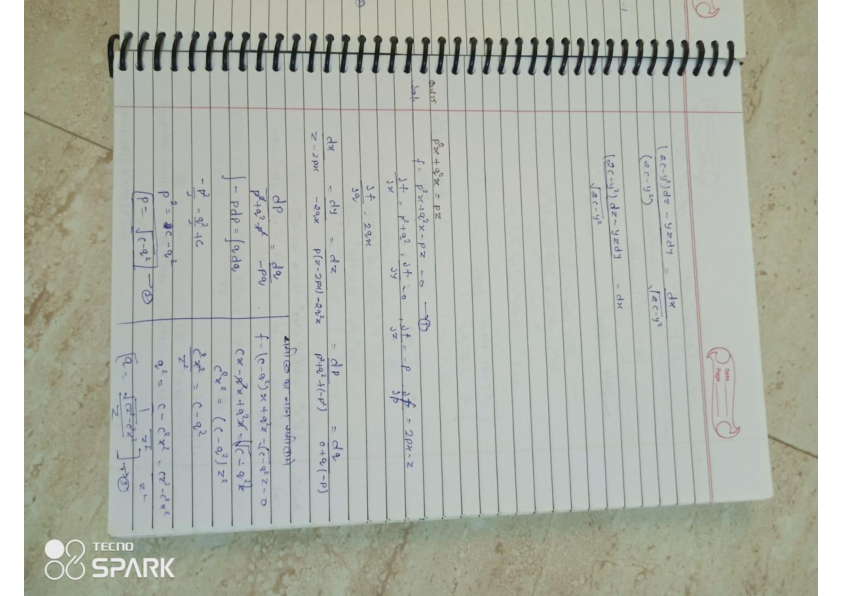 Date
Page
(zc-y²)dz - yzdy = dx
(zc-y²) √zc-y²
(zc-y²)dz - yzdy = dx
√zc-y²
p²x + q²x = pz
Sol.
f = p²x + q²x - pz = 0 — ①
∂f/∂x = p²+q², ∂f/∂y = 0, ∂f/∂z = -p, ∂f/∂p = 2px-z
∂f/∂q = 2qx
dx/z-2px = dy/-2qx = dz/p(z-2px)-2q²x = dp/p²+q²+(-p²) = dq/0+q(-p)
dp/p²+q²-p² = dq/-pq
∫-pdp = ∫qdq
-p²/2 = q²/2 + c
p² = c - q²
p = √c-q² — ②
f = (c-q²)x + q²x - √c-q² z = 0
cx - q²x + q²x = √c-q² z
c²x² = (c-q²)z²
c²x²/z² = c-q²
q² = c - c²x²/z² = cz²-c²x²/z²
q = 1/z √cz²-c²x² — ③
TECNO
SPARK